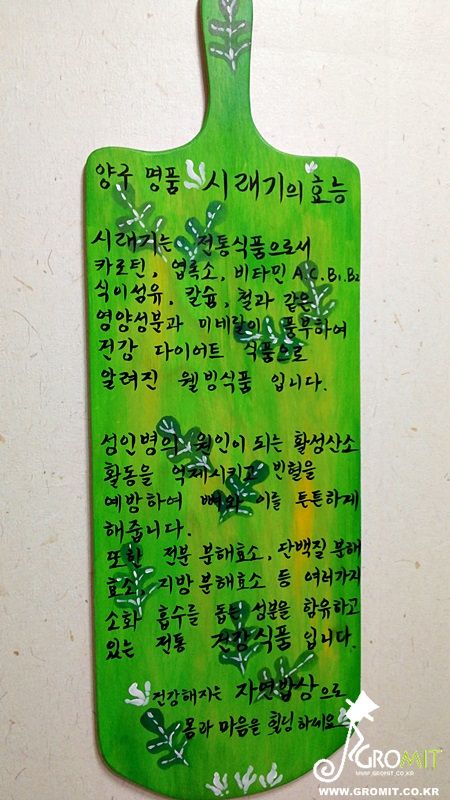 양구 명품 시래기의 효능
시래기는 전통식품으로서
카로틴, 엽록소, 비타민 A.C.B₁.B₂
식이섬유, 칼슘, 철과 같은
영양성분과 미네랄이 풍부하여
건강 다이어트 식품으로
알려진 웰빙식품 입니다.
성인병의 원인이 되는 활성산소
활동을 억제시키고 빈혈을
예방하여 뼈와 이를 튼튼하게
해줍니다.
또한 전분 분해효소, 단백질 분해
효소, 지방 분해효소 등 여러가지
소화 흡수를 돕는 성분을 함유하고
있는 전통 건강식품 입니다.
건강해지는 자연밥상으로
몸과 마음을 힐링 하세요
GROMIT
WWW.GROMIT.CO.KR
WWW.GROMIT.CO.KR